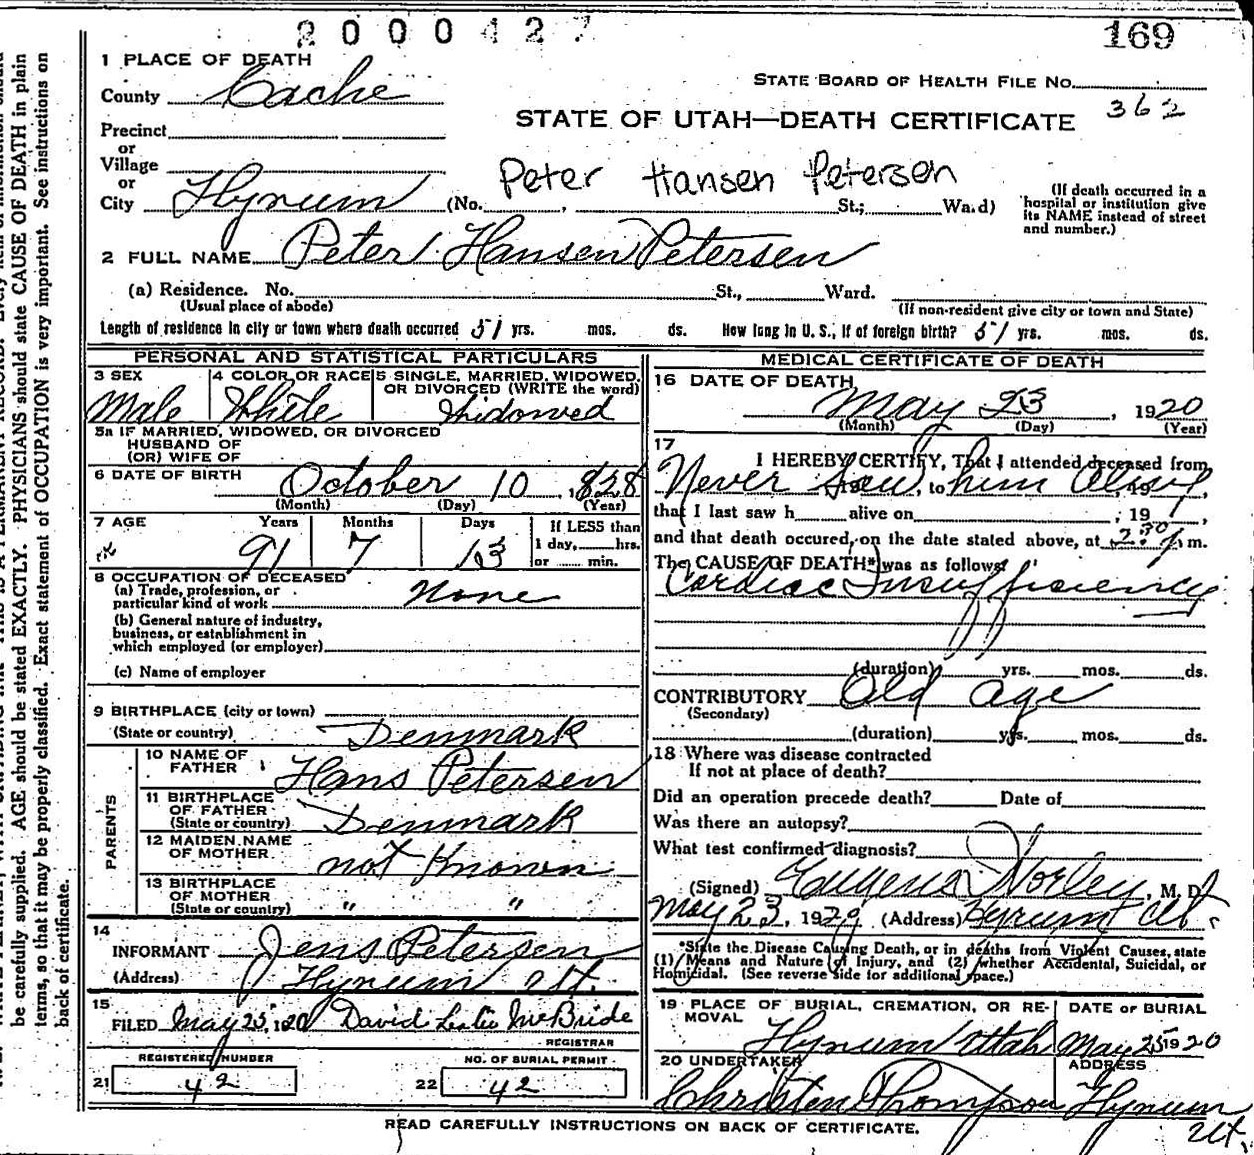 2000427
169
1 PLACE OF DEATH
STATE BOARD OF HEALTH FILE No.
County Cache
362
STATE OF UTAH—DEATH CERTIFICATE
Precinct
or
Village
or
Peter Hansen Petersen
City Hyrum (No. , St.; Ward)
(If death occurred in a hospital or institution give its NAME instead of street and number.)
2 FULL NAME Peter Hansen Petersen
(a) Residence. No. St., Ward.
(Usual place of abode) (If non-resident give city or town and State)
Length of residence in city or town where death occurred 51 yrs. mos. ds. How long in U. S., if of foreign birth? 51 yrs. mos. ds.
PERSONAL AND STATISTICAL PARTICULARS
3 SEX 4 COLOR OR RACE 5 SINGLE, MARRIED, WIDOWED, OR DIVORCED (WRITE the word)
Male White Widowed
5a IF MARRIED, WIDOWED, OR DIVORCED
HUSBAND OF
(OR) WIFE OF
6 DATE OF BIRTH October 10, 1828
(Month) (Day) (Year)
7 AGE Years Months Days If LESS than
91 7 13 1 day, hrs.
or min.
8 OCCUPATION OF DECEASED
(a) Trade, profession, or
particular kind of work None
(b) General nature of industry,
business, or establishment in
which employed (or employer)
(c) Name of employer
9 BIRTHPLACE (city or town)
(State or country) Denmark
PARENTS
10 NAME OF
FATHER Hans Petersen
11 BIRTHPLACE
OF FATHER
(State or country) Denmark
12 MAIDEN NAME
OF MOTHER not Known
13 BIRTHPLACE
OF MOTHER
(State or country) " "
14
INFORMANT Jens Petersen
(Address) Hyrum Ut.
15
FILED May 25, 1920 David Leslie McBride
REGISTRAR
REGISTERED NUMBER NO. OF BURIAL PERMIT
21 42 22 42
MEDICAL CERTIFICATE OF DEATH
16 DATE OF DEATH
May 23, 1920
(Month) (Day) (Year)
17
I HEREBY CERTIFY, That I attended deceased from
Never Saw, to him alive, 19
that I last saw h alive on , 19 ,
and that death occured, on the date stated above, at 2:30 P. m.
The CAUSE OF DEATH* was as follows:
Cardiac Insufficiency
(duration) yrs. mos. ds.
CONTRIBUTORY Old age
(Secondary)
(duration) yrs. mos. ds.
18 Where was disease contracted
If not at place of death?
Did an operation precede death? Date of
Was there an autopsy?
What test confirmed diagnosis?
(Signed) Eugene Worley, M. D.
May 23, 1920 (Address) Hyrum Ut.
*State the Disease Causing Death, or in deaths from Violent Causes, state
(1) Means and Nature of Injury, and (2) whether Accidental, Suicidal, or
Homicidal. (See reverse side for additional space.)
19 PLACE OF BURIAL, CREMATION, OR RE-
MOVAL DATE OF BURIAL
Hyrum Utah May 25 1920
20 UNDERTAKER ADDRESS
Christen Thompson Hyrum
Ut.
READ CAREFULLY INSTRUCTIONS ON BACK OF CERTIFICATE.
be carefully supplied. AGE should be stated EXACTLY. PHYSICIANS should state CAUSE OF DEATH in plain
terms, so that it may be properly classified. Exact statement of OCCUPATION is very important. See instructions on
back of certificate.